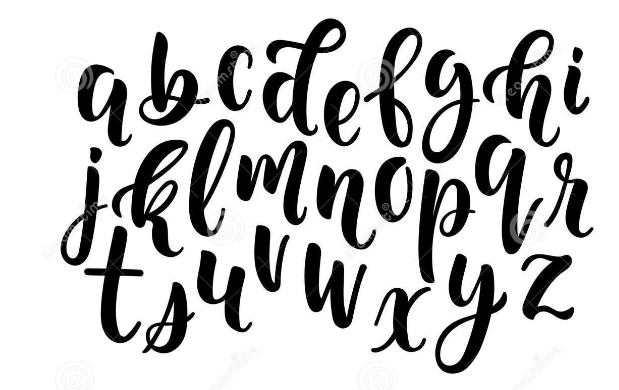 a b c d e f g h i
j k l m n o p q r
t s u v w x y z